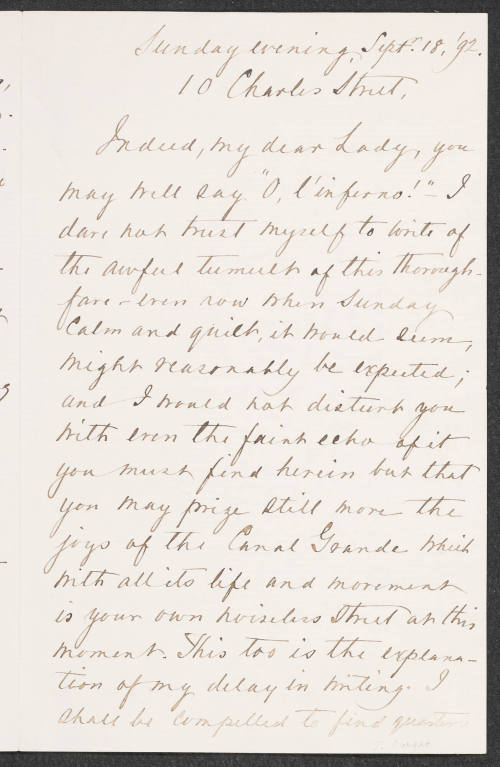 Sunday evening, Sept. 18, '92.
10 Charles Street,
Indeed, my dear Lady, you
may well say "O, l'inferno!" - I
dare not trust myself to write of
the awful tumult of this thorough-
fare - even now when Sunday
Calm and quiet, it would seem,
might reasonably be expected;
and I would not disturb you
with even the faint echo of it
you must find herein but that
you may prize still more the
joys of the Canal Grande which
with all its life and movement
is your own noiseless Street at this
moment. This too is the explana-
tion of my delay in writing. I
shall be compelled to find quarters